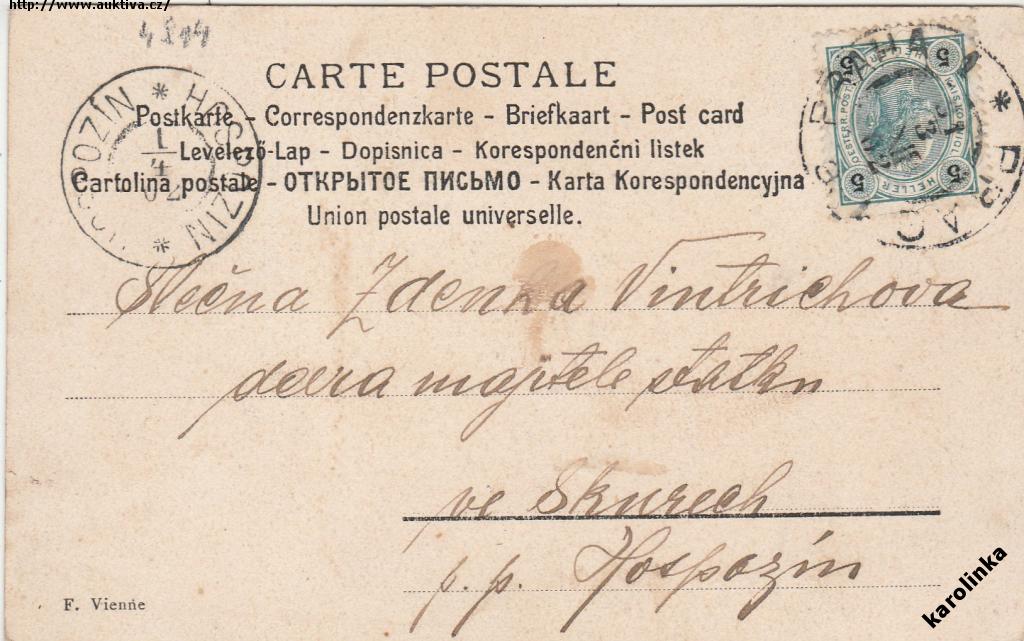 http://www.auktiva.cz/
4814
CARTE POSTALE
Postkarte - Correspondenzkarte - Briefkaart - Post card
Levelező-Lap - Dopisnica - Korespondenční listek
Cartolina postale - ОТКРЫТОЕ ПИСЬМО - Karta Korespondencyjna
Union postale universelle.
HOSPOZIN * HOSPOZÍN *
1
4
02
PRAHA 1 * PRAG
5 5 5 5
HELLER HELLER
Slečna Zdenka Vintrichova
dcera majitele statku
ve Skurech
p. p. Hospozín
F. Vienne
karolinka